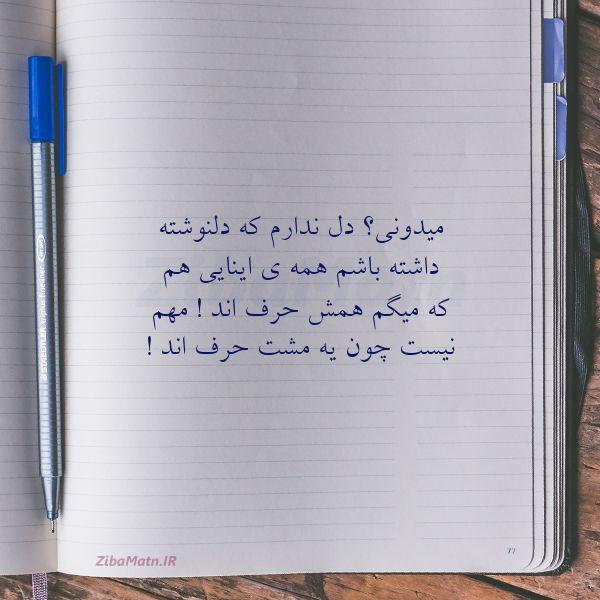 میدونی؟ دل ندارم که دلنوشته
داشته باشم همه ی اینایی هم
که میگم همش حرف اند ! مهم
نیست چون یه مشت حرف اند !
77
ZibaMatn.IR